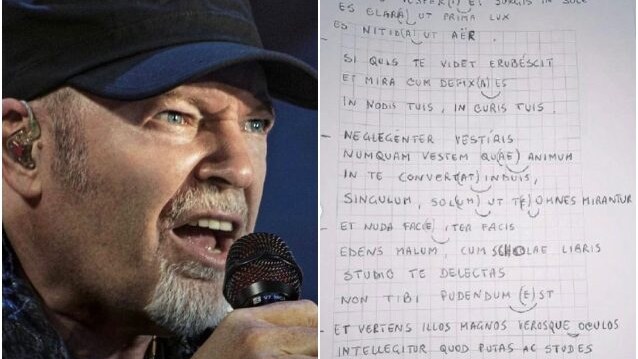 ET SURGIS IN SOLE
ES CLARA UT PRIMA LUX
ES NITID(A) UT AER.
SI QUIS TE VIDET ERUBÉSCIT
ET MIRA CUM DEFIX(A) ES
IN NODIS TUIS, IN CURIS TUIS.
NEGLEGÉNTER VESTÍRIS
NUMQUAM VESTEM QU(AE) ANIMUM
IN TE CONVERT(AT) INDUIS,
SINGULUM, SOL(UM) UT T(E) OMNES MIRANTUR
ET NUDA FAC(E) ITER FACIS
EDENS MALUM, CUM SCHOLAE LIBRIS
STUDIO TE DELECTAS
NON TIBI PUDENDUM (E)ST
ET VERTENS ILLOS MAGNOS VEROSQUE OCULOS
INTELLEGITUR QUOD PUTAS AC STUDES